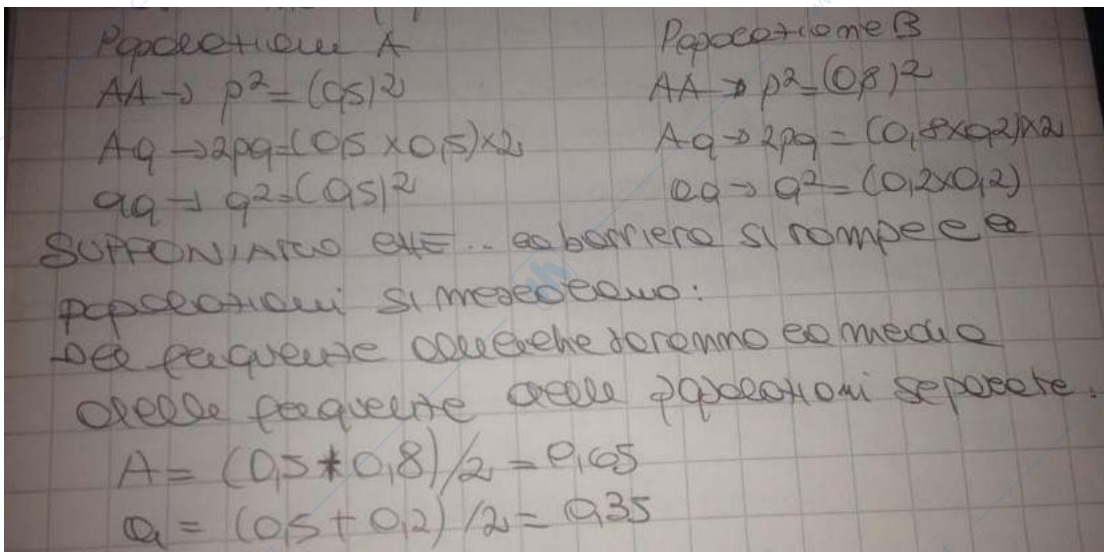 Popolazioni A Popolazione B
AA → p² = (0,5)² AA → p² (0,8)²
Aa → 2pq = (0,5 x 0,5) x 2 Aa → 2pq = (0,8 x 0,2) x 2
aa → q² = (0,5)² aa → q² = (0,2x0,2)
SUPPONIAMO CHE .. la barriera si rompe e le
popolazioni si mescolano:
→ le frequenze alleliche saranno la media
delle frequenze delle popolazioni separate.
A = (0,5 + 0,8)/2 = 0,65
a = (0,5 + 0,2)/2 = 0,35